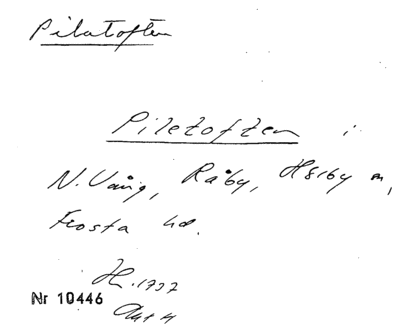 Pilatoften
Piletoften i
N. Vång, Råby, Hörby m,
Frosta hd.
H. 1737
Nr 10446
Akt 4